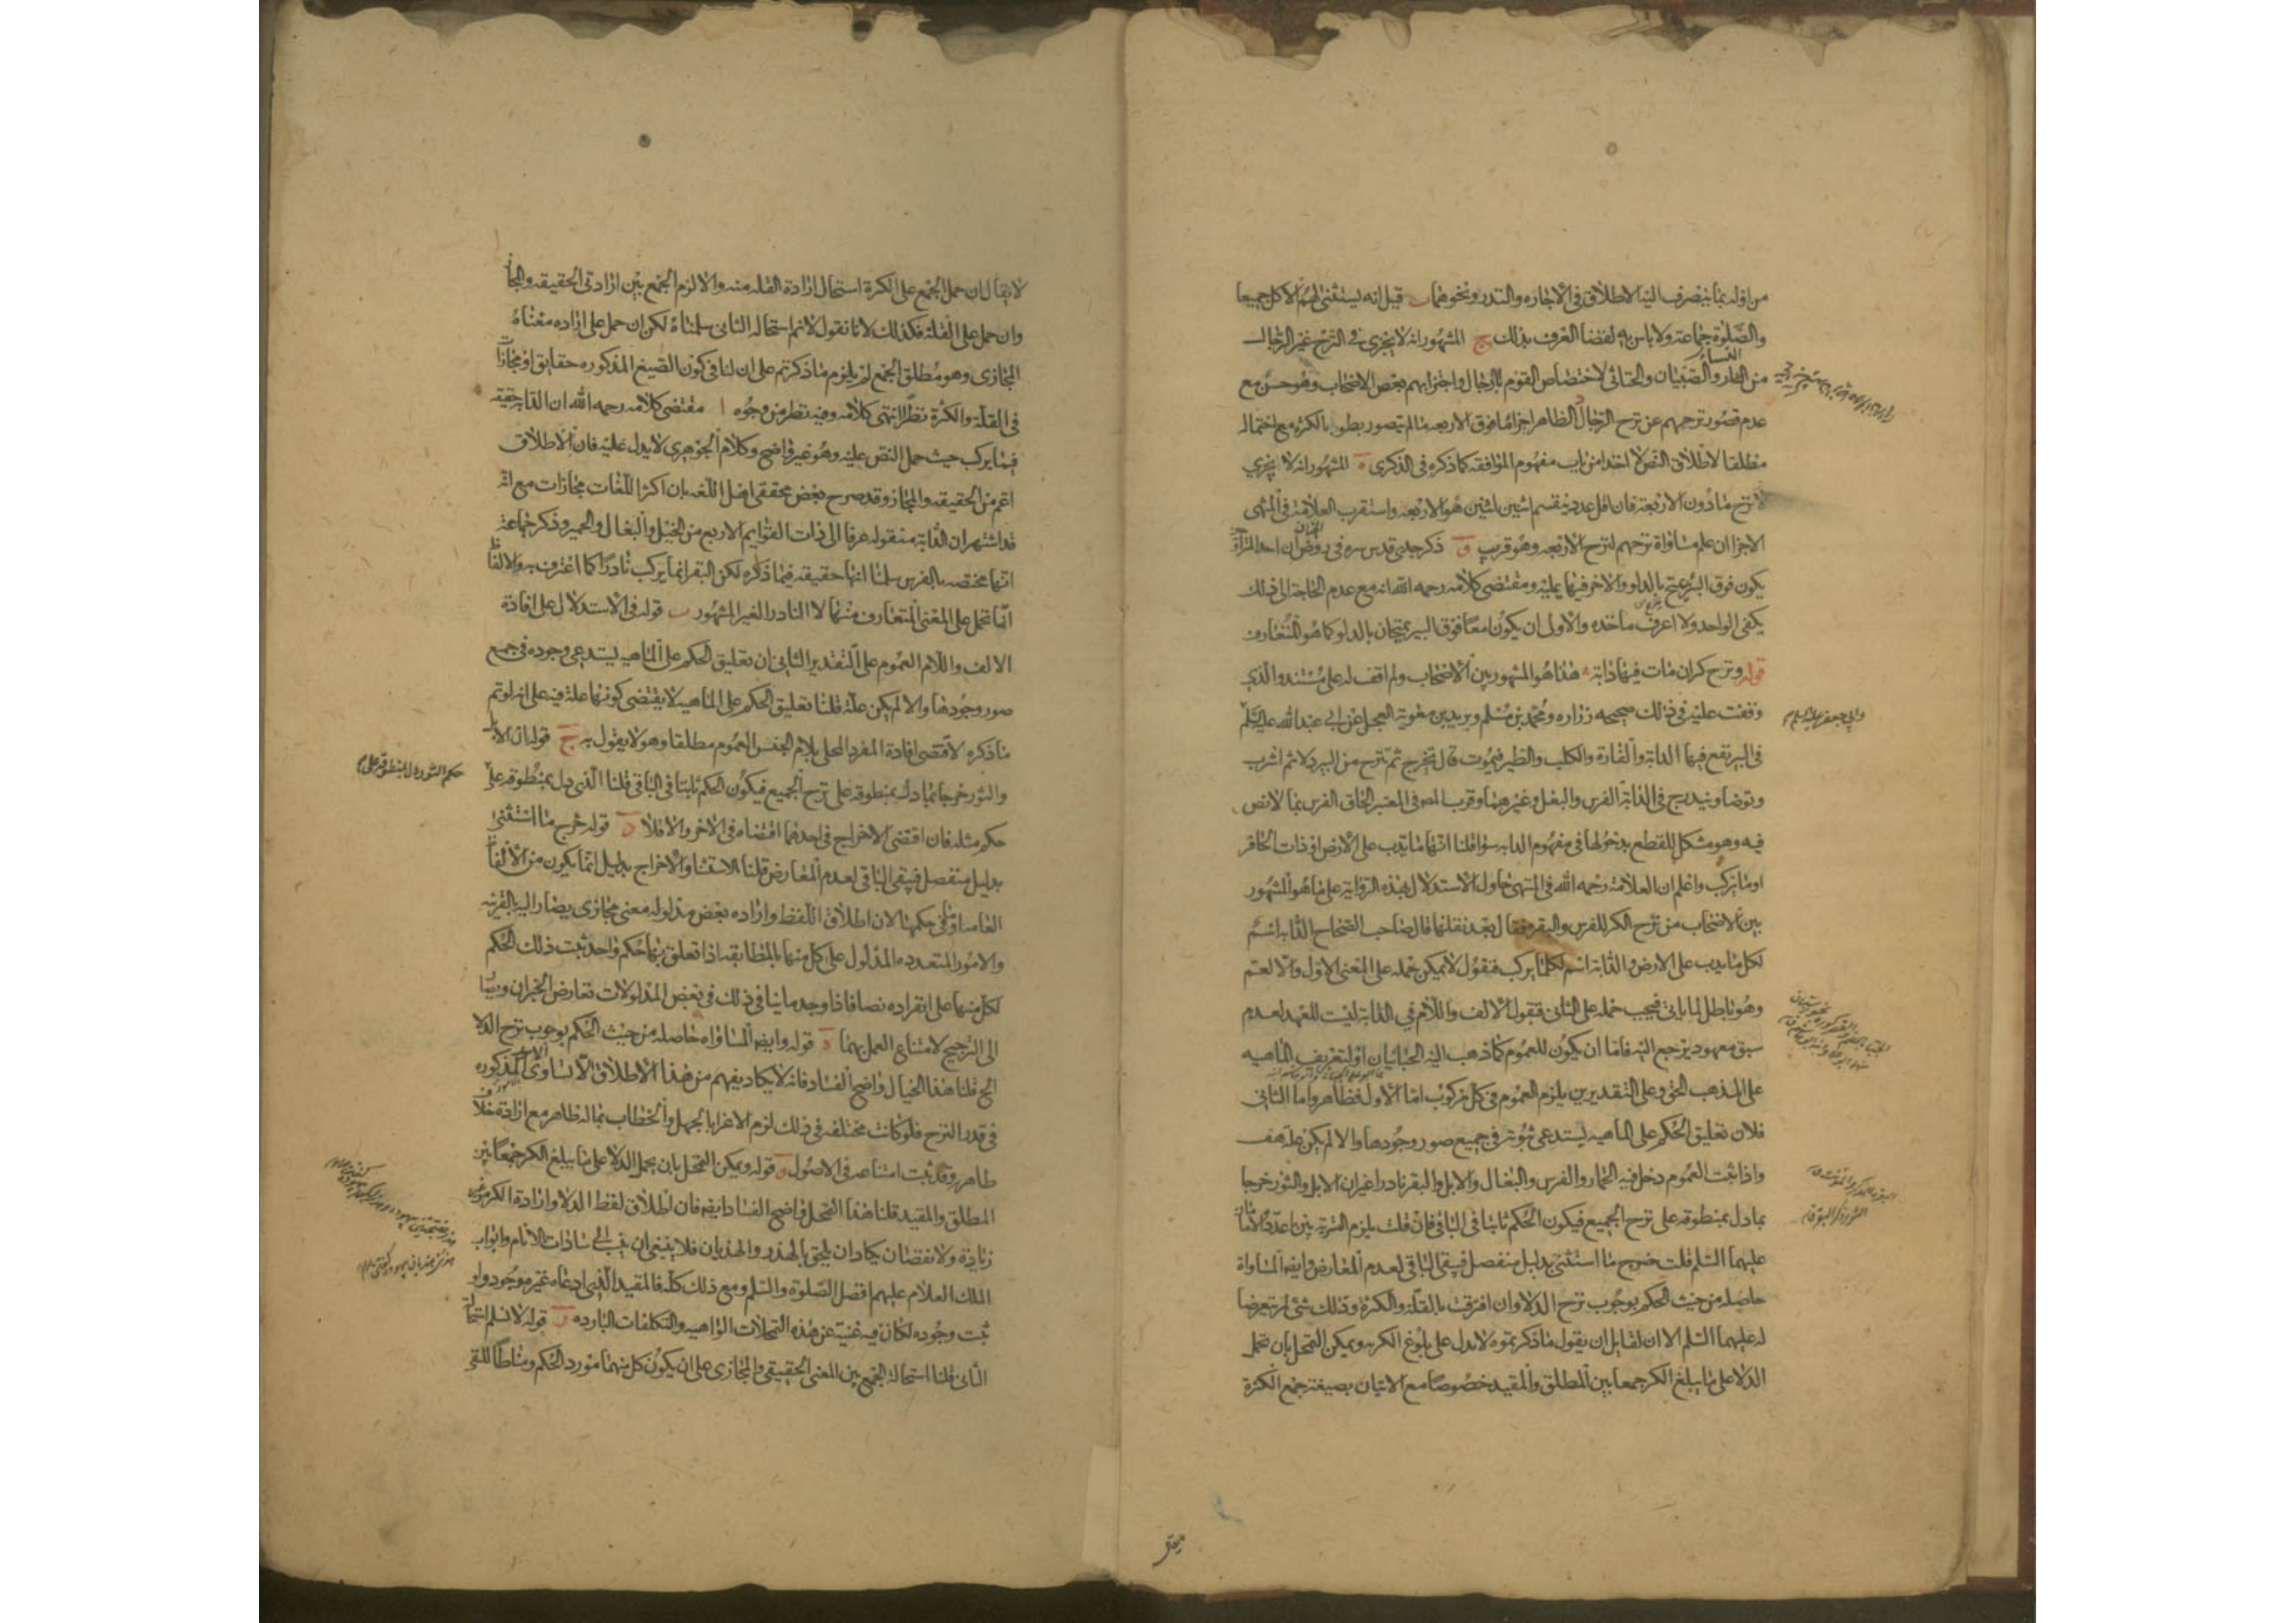 من اوله بما ينصرف اليه الاطلاق في الاجاره والنذر ونحوهما ب قيل انه يستثنى لهم الاكل جميعا
والصلوة جماعة ولا باس به لقضا العرف بذلك ج المشهور انه لا يجزى في النزح غير الرجال
من النساء والصبيان والخناثى لاختصاص القوم بالرجال واجتزا بهم بعض الاصحاب وهو حسن مع
عدم قصور نزحهم عن نزح الرجال د الظاهر اجزاء ما فوق الاربعه ما لم يتصور بطو بالكثرة مع احتماله
مطلقا لاطلاق النص لاخذا من باب مفهوم الموافقه كما ذكره في الذكرى ه المشهور انه لا يجزي
لانزح ما دون الاربعة فان اقل عدد ينقسم اثنين اثنين هو الاربعه واستقرب العلامة في المنتهى
الاجزا ان علم مساواة نزحهم لنزح الاربعه وهو قريب و ذكر جدى قدس سره في روض الجنان ان احد
يكون فوق البئر يمتح بالدلو والاخر فيها يمليه ومقتضى كلامه رحمه الله انه مع عدم الحاجة الى ذلك
يكفى الواحد ولا اعرف ماخذه والاولى ان يكونا معا فوق البير يمتحان بالدلو كما هو المتعارف
قوله ونزح كر ان مات فيها دابة هذا هو المشهور بين الاصحاب ولم اقف له على مستند والذي
وقفت عليه في ذلك صحيحه زراره ومحمد بن مسلم وبريد بن معوية العجلى عن ابي عبد الله عليه السلم
وابي جعفر عليه السلم
في البير تقع فيها الدابة والفارة والكلب والطير فيموت قال تخرج ثم ينزح من البير دلاء ثم اشرب
وتوضا ويندرج في الدابة الفرس والبغل وغيرهما وقرب المص في المعتبر الحاق الفرس بما لا نص
فيه وهو مشكل للقطع بدخولها في مفهوم الدابه سوا قلنا انها ما يدب على الارض او ذات الحافر
او ما يركب واعلم ان العلامة رحمه الله في المنتهى حاول الاستدلال بهذه الرواية على ما هو المشهور
بين الاصحاب من نزح الكر للفرس والبقر فقال بعد نقلها قال صاحب الصحاح الدابه اسم
لكل ما يدب على الارض والدابة اسم لكل ما يركب فنقول لا يمكن حمله على المعنى الاول والا لعم
وهو باطل لما ياتى فيجب حمله على الثانى فنقول الالف واللام في الدابة ليست للعهد لعدم
سبق معهود يرجع اليه فاما ان يكون للعموم كما ذهب اليه الجبائيان او لتعريف الماهيه
على المذهب الحق وعلى التقديرين يلزم العموم في كل مركوب اما الاول فظاهر واما الثاني
فلان تعليق الحكم على الماهيه يستدعى ثبوته في جميع صور وجودها والا لم يكن علة هف
واذا ثبت العموم دخل فيه الحمار والفرس والبغال والابل والبقر نادرا غير ان الابل والثور خرجا
بما دل بمنطوقه على نزح الجميع فيكون الحكم ثابتا في الباقي فان قلت يلزم التسوية بين ما عدده الامام
عليهما السلم قلت خرج ما استثنى بدليل منفصل فيبقى الباقي لعدم المعارض وايضا المساواة
حاصلة من حيث الحكم بوجوب نزح الدلاء وان افترقت بالقلة والكثرة وذلك شئ لم يتعرضا
له عليهما السلم الا ان لقايل ان يقول ما ذكرتموه لا يدل على بلوغ الكريه ويمكن التمحل بان يحمل
الدلاء على ما يبلغ الكر جمعا بين المطلق والمقيد خصوصا مع الاتيان بصيغة جمع الكثرة
لا يقال ان حمل الجمع على الكثرة استحال ارادة القله منه والا لزم الجمع بين ارادتى الحقيقه والمجاز
وان حمل على القلة فكذلك لانا نقول لانم استحاله الثانى سلمناه لكن ان حمل على اراده معناه
المجازى وهو مطلق الجمع لم يلزم ما ذكرتم على ان لنا في كون الصيغ المذكوره حقايق او مجازات
في القلة والكثرة نظرا انتهى كلامه وفيه نظر من وجوه ا مقتضى كلامه رحمه الله ان الدابة حقيقه
فيما يركب حيث حمل النص عليه وهو غير واضح وكلام الجوهرى لا يدل عليه فان الاطلاق
اعم من الحقيقه والمجاز وقد صرح بعض محققى اهل اللغه بان اكثر اللغات مجازات مع انه
قد اشتهر ان الدابة منقوله عرفا الى ذات القوايم الاربع من الخيل والبغال والحمير وذكر جماعة
انها مختصه بالفرس سلمنا انها حقيقه فيما ذكره لكن البقر انما يركب نادرا كما اعترف به والالفاظ
انما تحمل على المعنى المتعارف منها لا النادر الغير المشهور ب قوله في الاستدلال على افادة
الالف واللام العموم على التقدير الثانى ان تعليق الحكم على الماهيه يستدعى وجوده في جميع
صور وجودها والا لم يكن علة قلنا تعليق الحكم على الماهيه لا يقتضى كونها علة فيه على انه لو تم
ما ذكره لاقتضى افادة المفرد المحلى بلام الجنس العموم مطلقا وهو لا يقول به ج قوله ان الابل
والثور خرجا بما دل بمنطوقه على نزح الجميع فيكون الحكم ثابتا في الباقى قلنا الذى دل بمنطوقه على
حكم الثور دل بمنطوقه على
حكم مثله فان اقتضى الاخراج في احدهما اقتضاه في الاخر والا فلا د قوله خرج ما استثنى
بدليل منفصل فيبقى الباقى لعدم المعارض قلنا الاستثنا والاخراج بدليل انما يكون من الالفاظ
العامة او ما في حكمها لان اطلاق اللفظ واراده بعض مدلوله معنى مجازى يصار اليه بالقرينه
والامور المتعدده المدلول على كل منها بالمطابقه اذا تعلق بها حكم واحد ثبت ذلك الحكم
لكل منها على انفراده نصا فاذا وجد ما ينافى ذلك في بعض المدلولات تعارض الخبران ويصار
الى الترجيح لامتناع العمل بهما ه قوله وايضا المساواه حاصلة من حيث الحكم بوجوب نزح الدلاء
الخ قلنا هذا الخيال واضح الفساد فانه لا يكاد يفهم من هذا الاطلاق الا تساوى الامور المذكوره
في قدر النزح فلو كانت مختلفه في ذلك لزم الاغرا بالجهل والخطاب بما له ظاهر مع ارادة خلاف
ظاهره وقد ثبت امتناعه في الاصول و قوله ويمكن التمحل بان يحمل الدلاء على ما يبلغ الكر جمعا بين
المطلق والمقيد قلنا هذا التمحل واضح الفساد ايضا فان اطلاق لفظ الدلاء وارادة الكر من غير
زيادة ولا نقصان يكاد ان يلحق بالهذر والهذيان فلا ينبغى ان ينسب الى سادات الانام وابواب
الملك العلام عليهم افضل الصلوة والسلم ومع ذلك كله فالمقيد الذى ادعاه غير موجود ولو
ثبت وجوده لكان فيه غنية عن هذه التمحلات الواهيه والتكلفات البارده ز قوله لا نسلم استحالة
الثانى قلنا استحالة الجمع بين المعنى الحقيقى والمجازى على ان يكون كل منهما مورد الحكم ومناطا للنفى